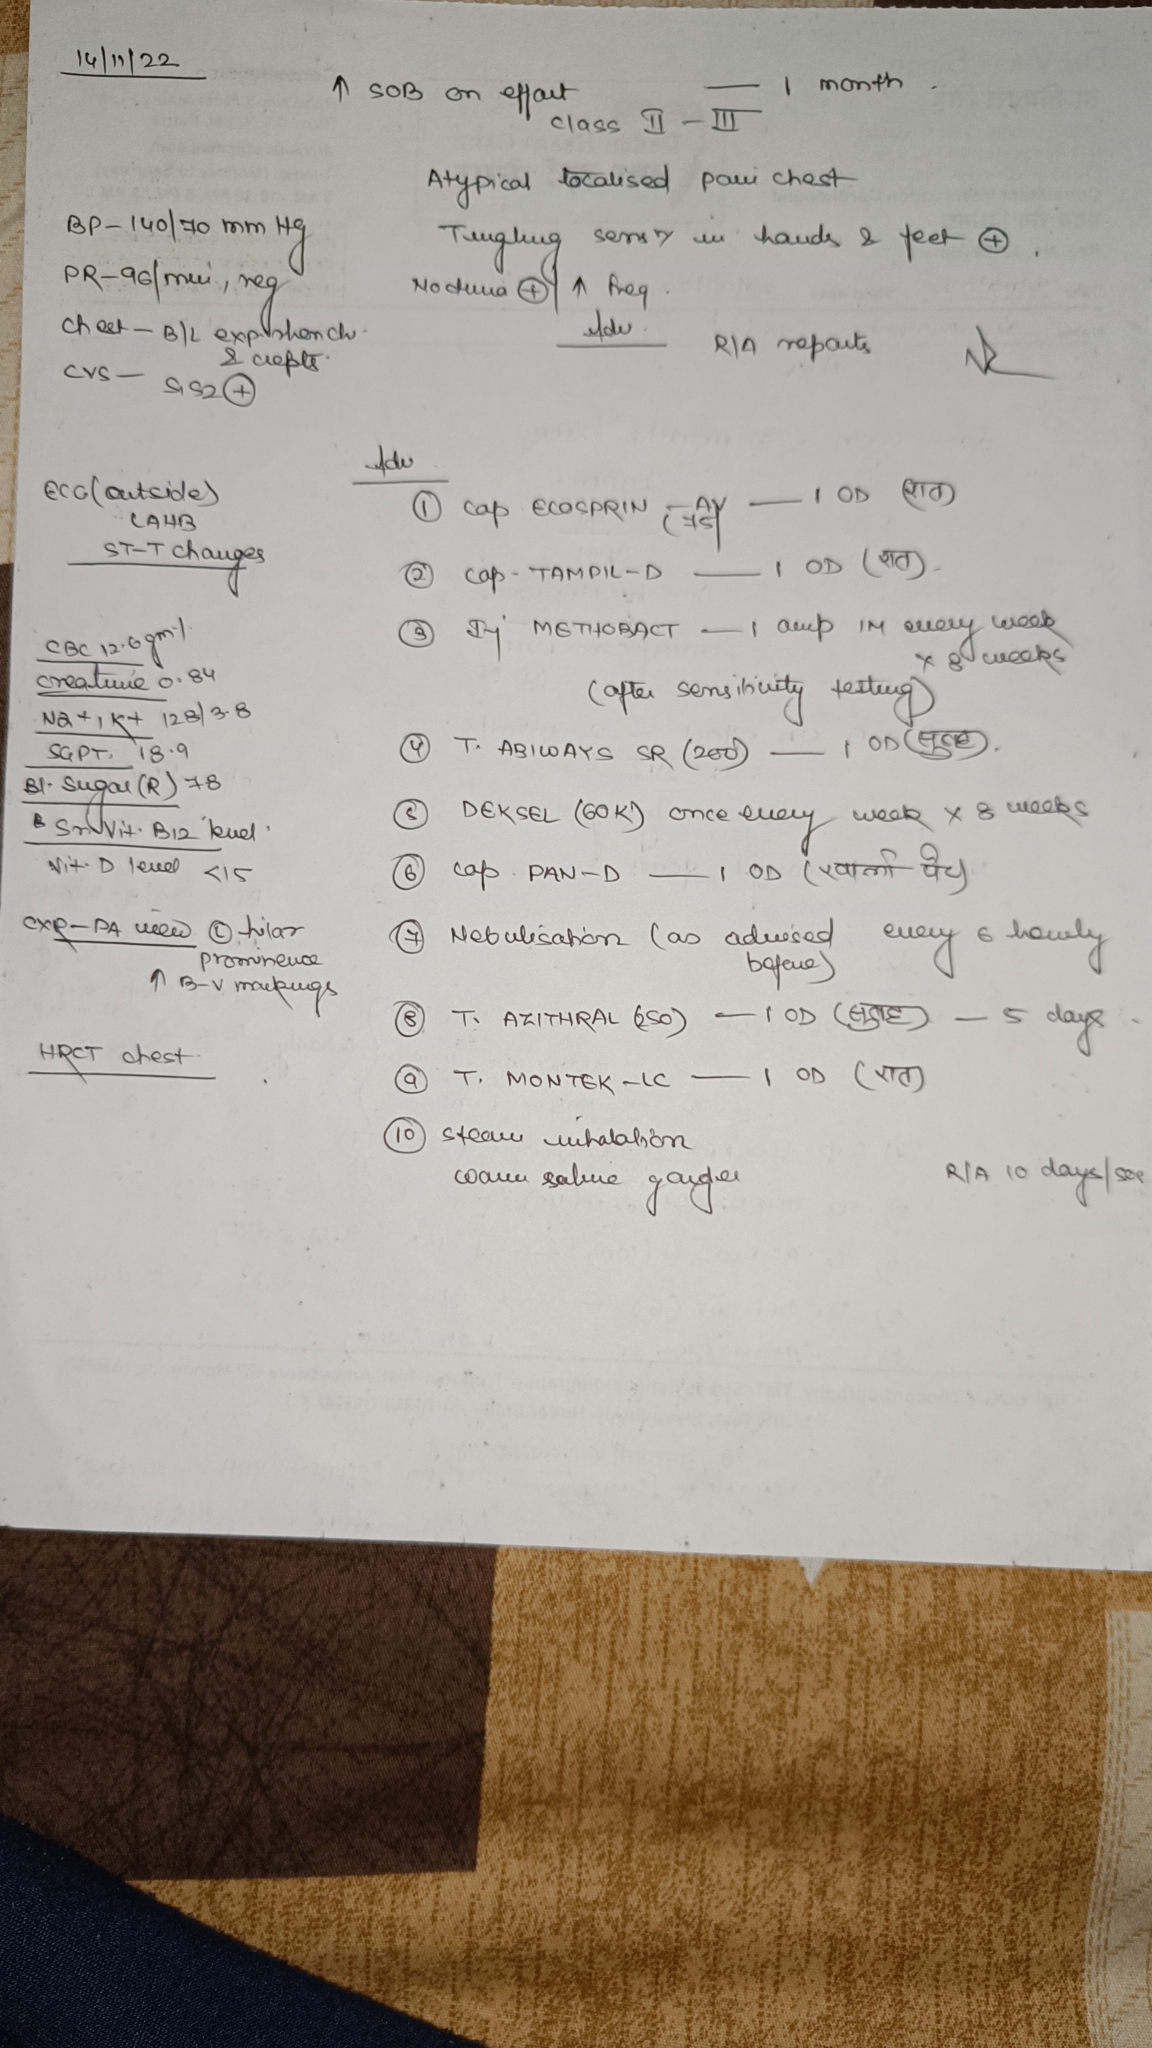 14/11/22
↑ SOB on effort — 1 month.
class II - III
Atypical localised pain chest
Tingling sens in hands & feet ⊕.
Nocturia ⊕ ↑ freq.
Adv.
R/A reports
BP - 140/70 mm Hg
PR - 96/min, reg
Chest - B/L exp. rhonchi
& crepts.
CVS - S1S2 ⊕
ECG (outside)
LAHB
ST-T changes
CBC 12.6 gm%
Creatinine 0.84
Na+, K+ 128/3.8
SGPT. 18.9
Bl. Sugar (R) 78
Sr. Vit. B12 level.
Vit. D level <15
CXR - PA view hilar
prominence
↑ B-V markings
HRCT chest.
Adv
① Cap ECOSPRIN - AV — 1 OD (रात)
(75)
② Cap - TAMPIL-D — 1 OD (रात).
③ Inj METHOBACT — 1 amp IM every week
x 8 weeks
(after sensitivity testing)
④ T. ABIWAYS SR (200) — 1 OD (सुबह).
⑤ DEKSEL (60K) once every week x 8 weeks
⑥ Cap. PAN-D — 1 OD (खाली पेट)
⑦ Nebulisation (as advised every 6 hourly
before)
⑧ T. AZITHRAL (250) — 1 OD (सुबह) — 5 days.
⑨ T. MONTEK-LC — 1 OD (रात)
⑩ Steam inhalation
warm saline gargles
R/A 10 days/SOS